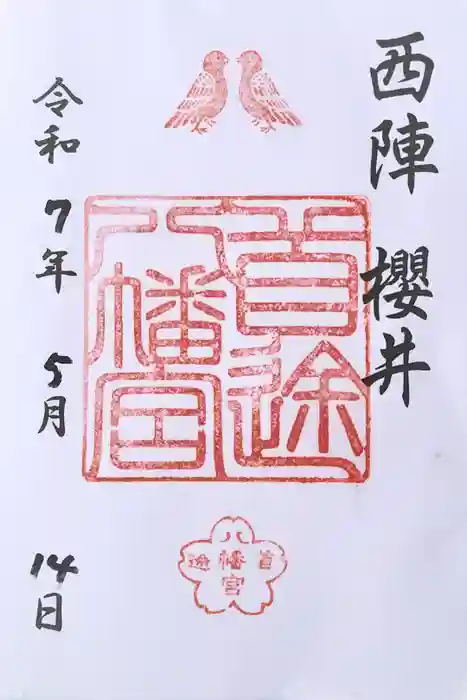 西陣 櫻井
首途
八幡宮
首途
八幡宮
令和7年5月14日